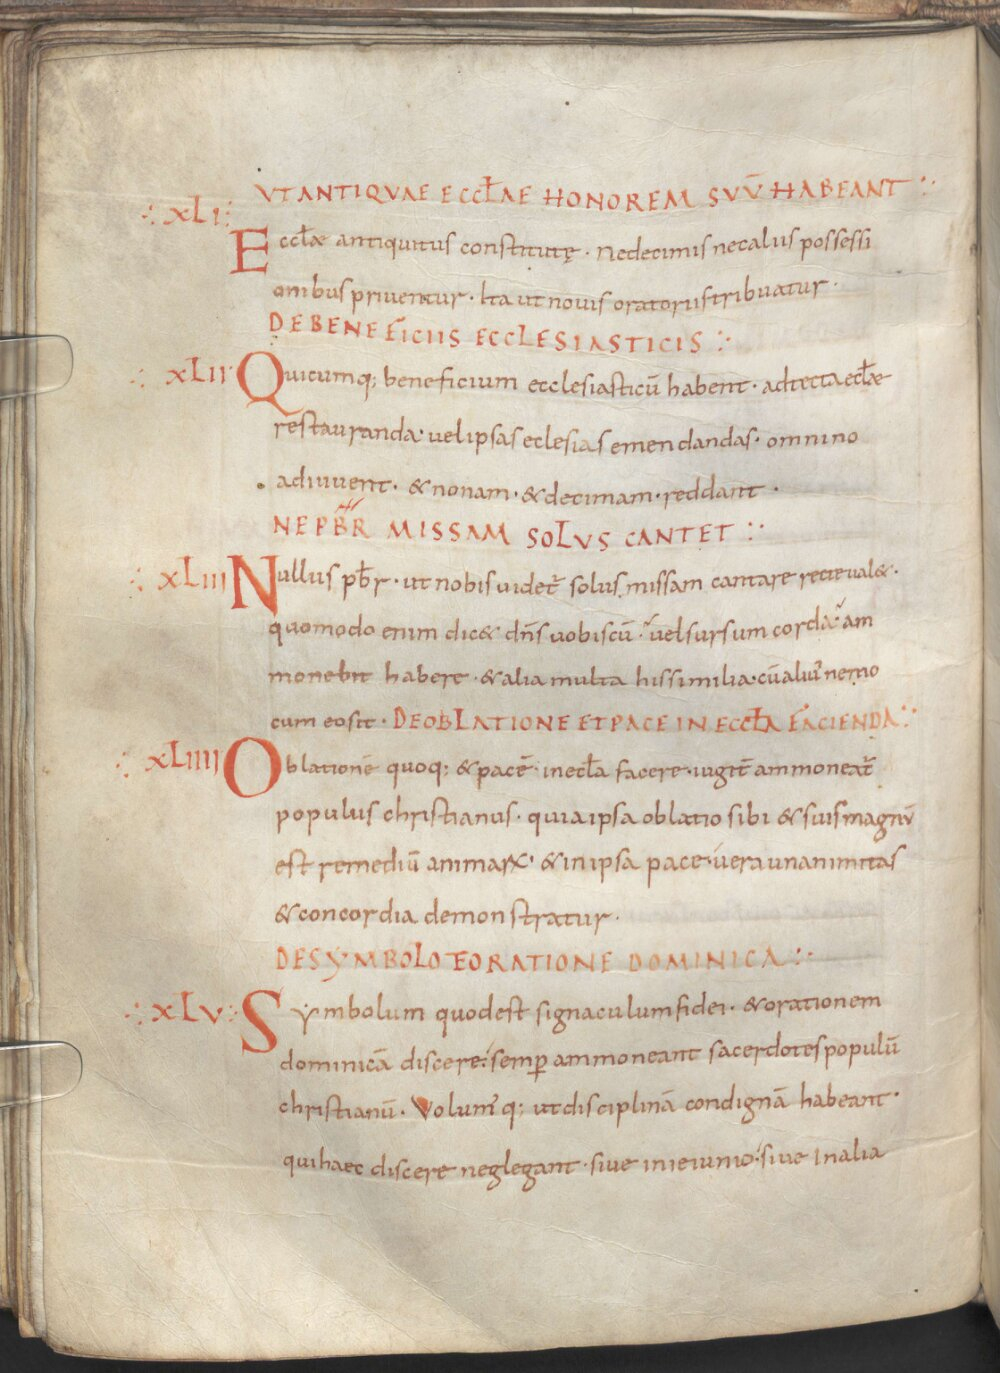 VT ANTIQVAE ECCŁAE HONOREM SVṼ HABEANT
XLI
Eccłae antiquitus constitutę · Nedecimis necalus possessi
onibus priventur · Ita ut novis oratoriis tribuatur ·
DE BENEFICIIS ECCLESIASTICIS
XLII
Quicumq; beneficium ecclesiasticū habent · adtecta ecłae
restauranda · vel ipsas eclesias emendandas · omnino
adiuvent · & nonam · & decimam · reddant ·
NE PBR MISSAM SOLVS CANTET
XLIII
Nullus pbr · ut nobis videt̄ solus missam cantare recte val& ·
quomodo enim dic& dn̄s vobiscū · vel sursum corda · am
monebit habere · & alia multa his similia · cū alius nemo
cum eo sit · DE OBLATIONE ET PACE IN ECCŁA FACIENDA
XLIIII
Oblationē quoq; & pacē · in ecła facere · iugit̄ ammoneat̄
populus christianus · quia ipsa oblatio sibi & suis magnū
est remediū animarꝝ · & in ipsa pace · vera unanimitas
& concordia demonstratur ·
DE SYMBOLO ET ORATIONE DOMINICA
XLV
Symbolum quod est signaculum fidei · & orationem
dominicā discere · semp̄ ammoneant sacerdotes populū
christianū · Volumꝰ q; ut disciplinā condignā habeant ·
qui haec discere neglegant · sive in ieiunio · sive in alia